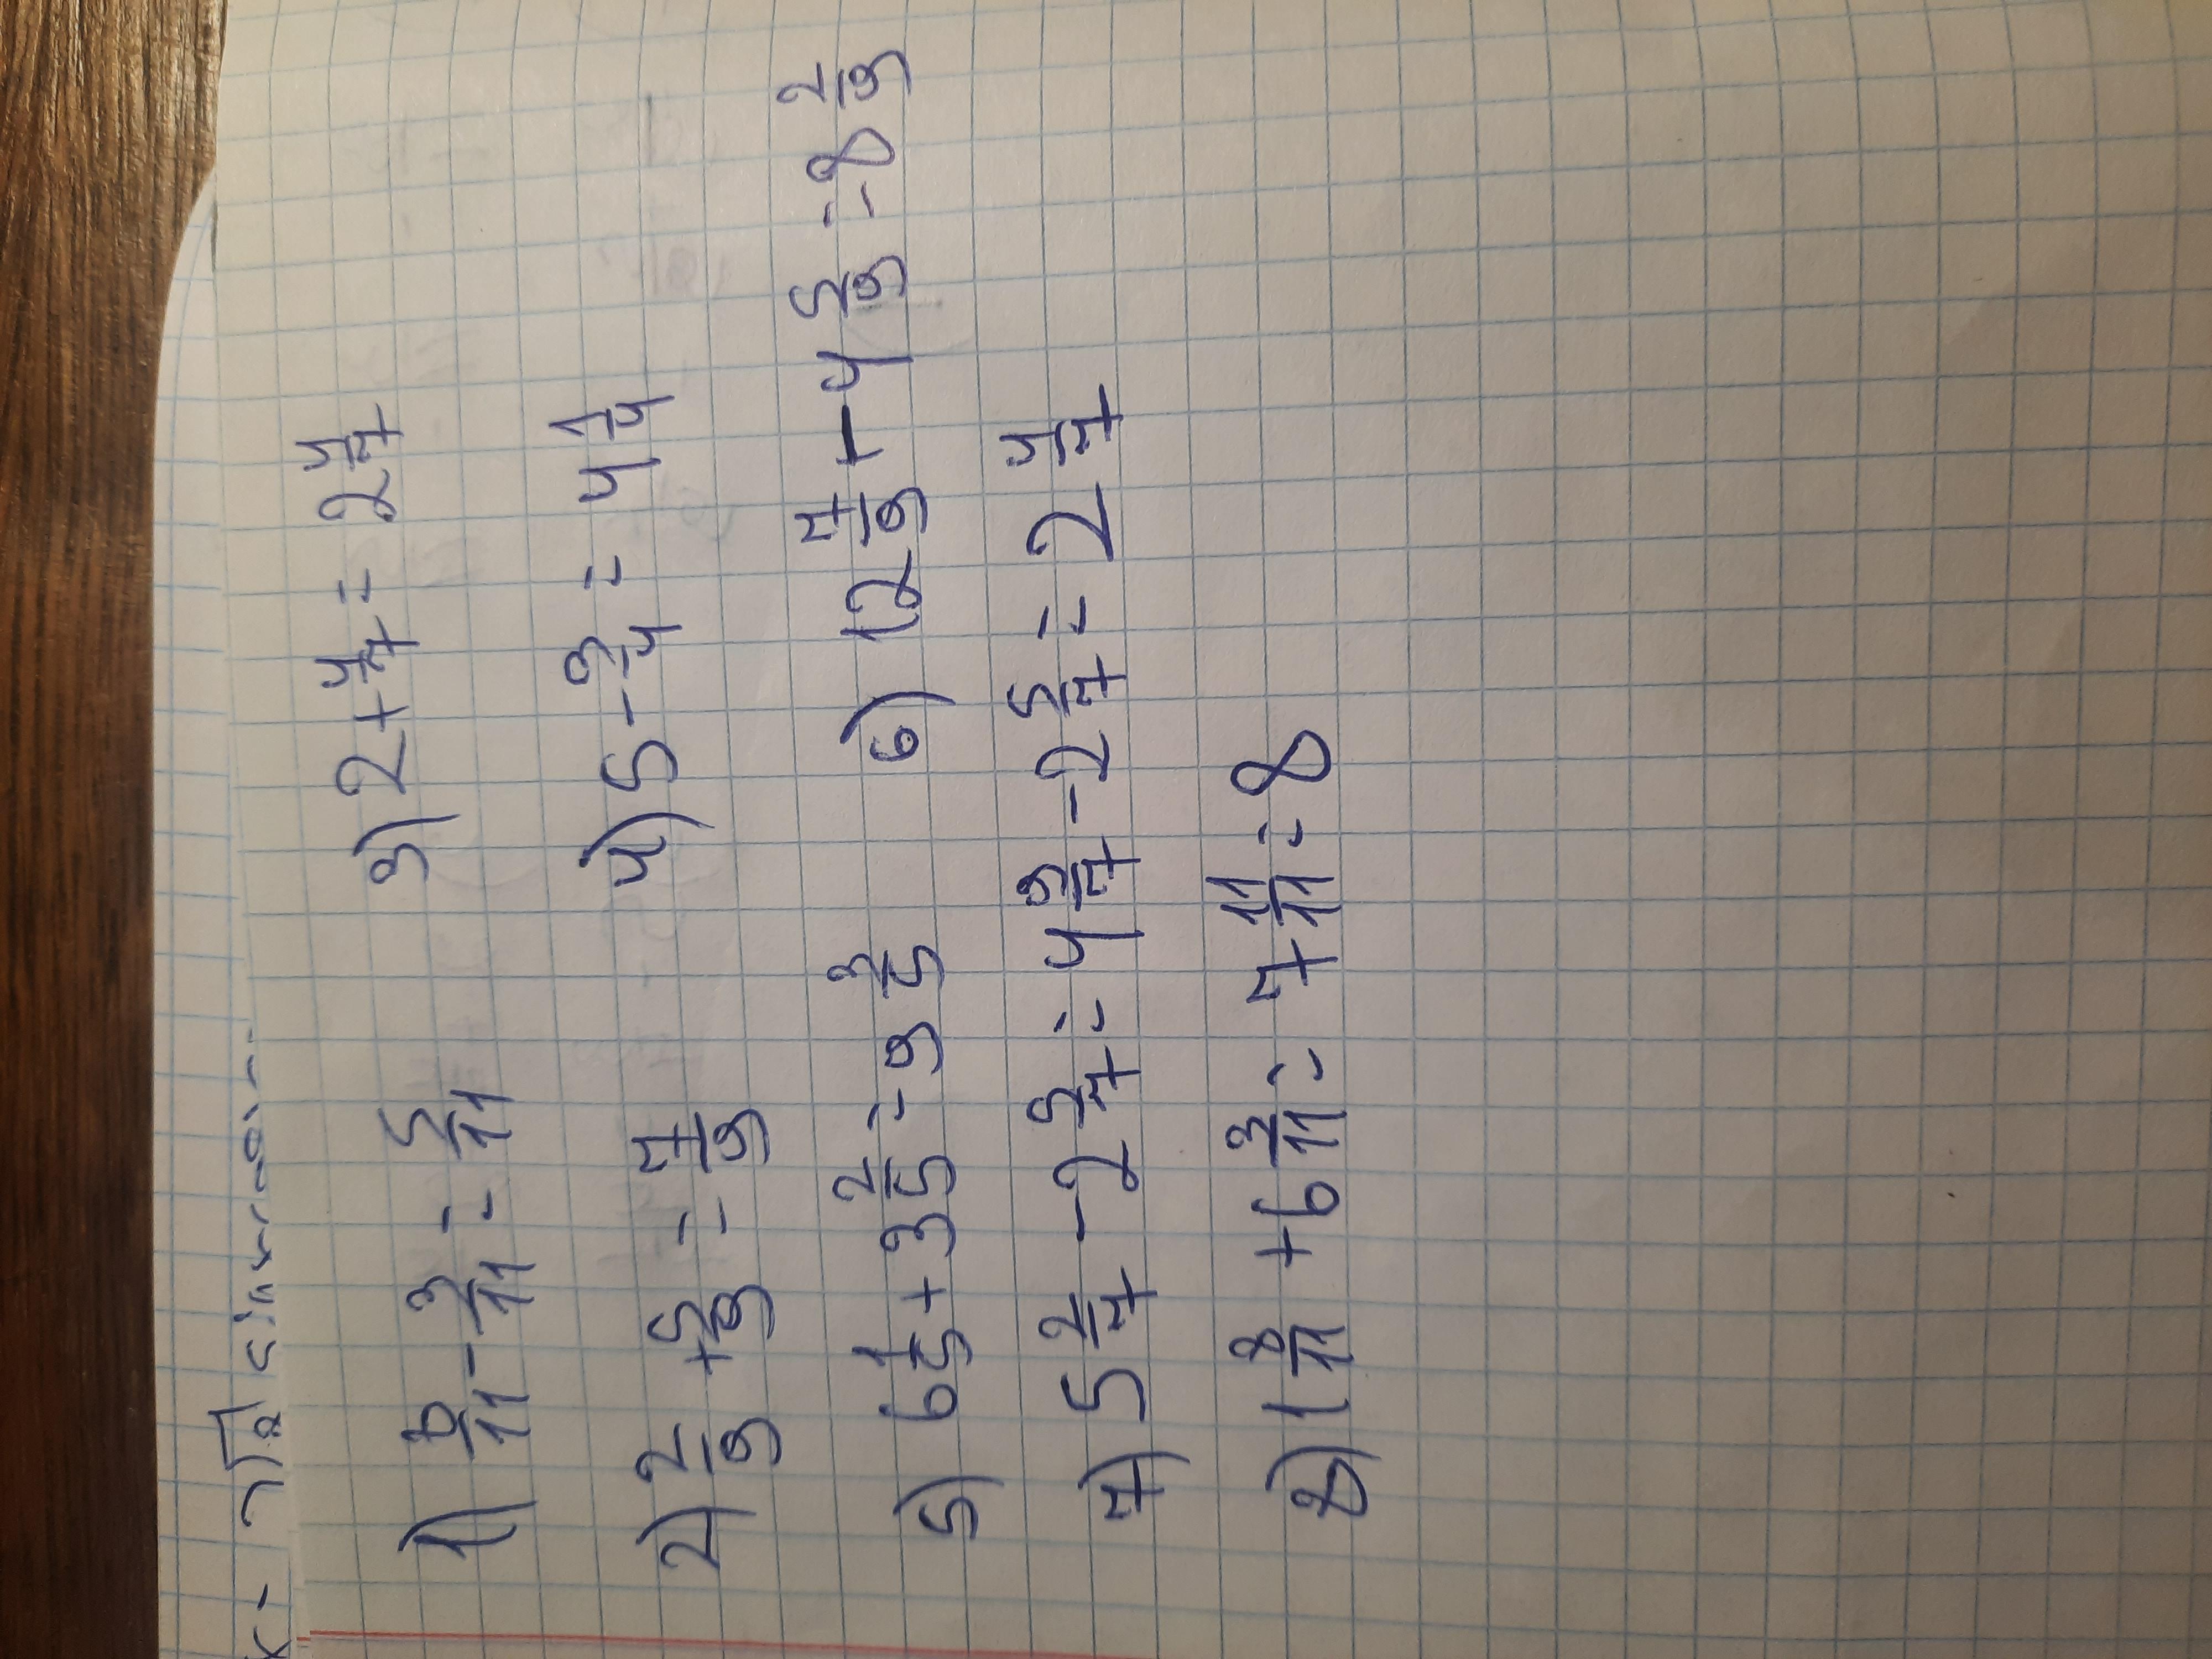 1) 8/11 - 3/11 = 5/11
3) 2 + 4/7 = 2 4/7
2) 2/9 + 5/9 = 7/9
4) 5 - 3/4 = 4 1/4
5) 6 1/5 + 3 2/5 = 9 3/5
6) 12 7/9 - 4 5/9 = 8 2/9
7) 5 2/7 - 2 5/7 = 4 9/7 - 2 5/7 = 2 4/7
8) 1 8/11 + 6 3/11 = 7 + 11/11 = 8